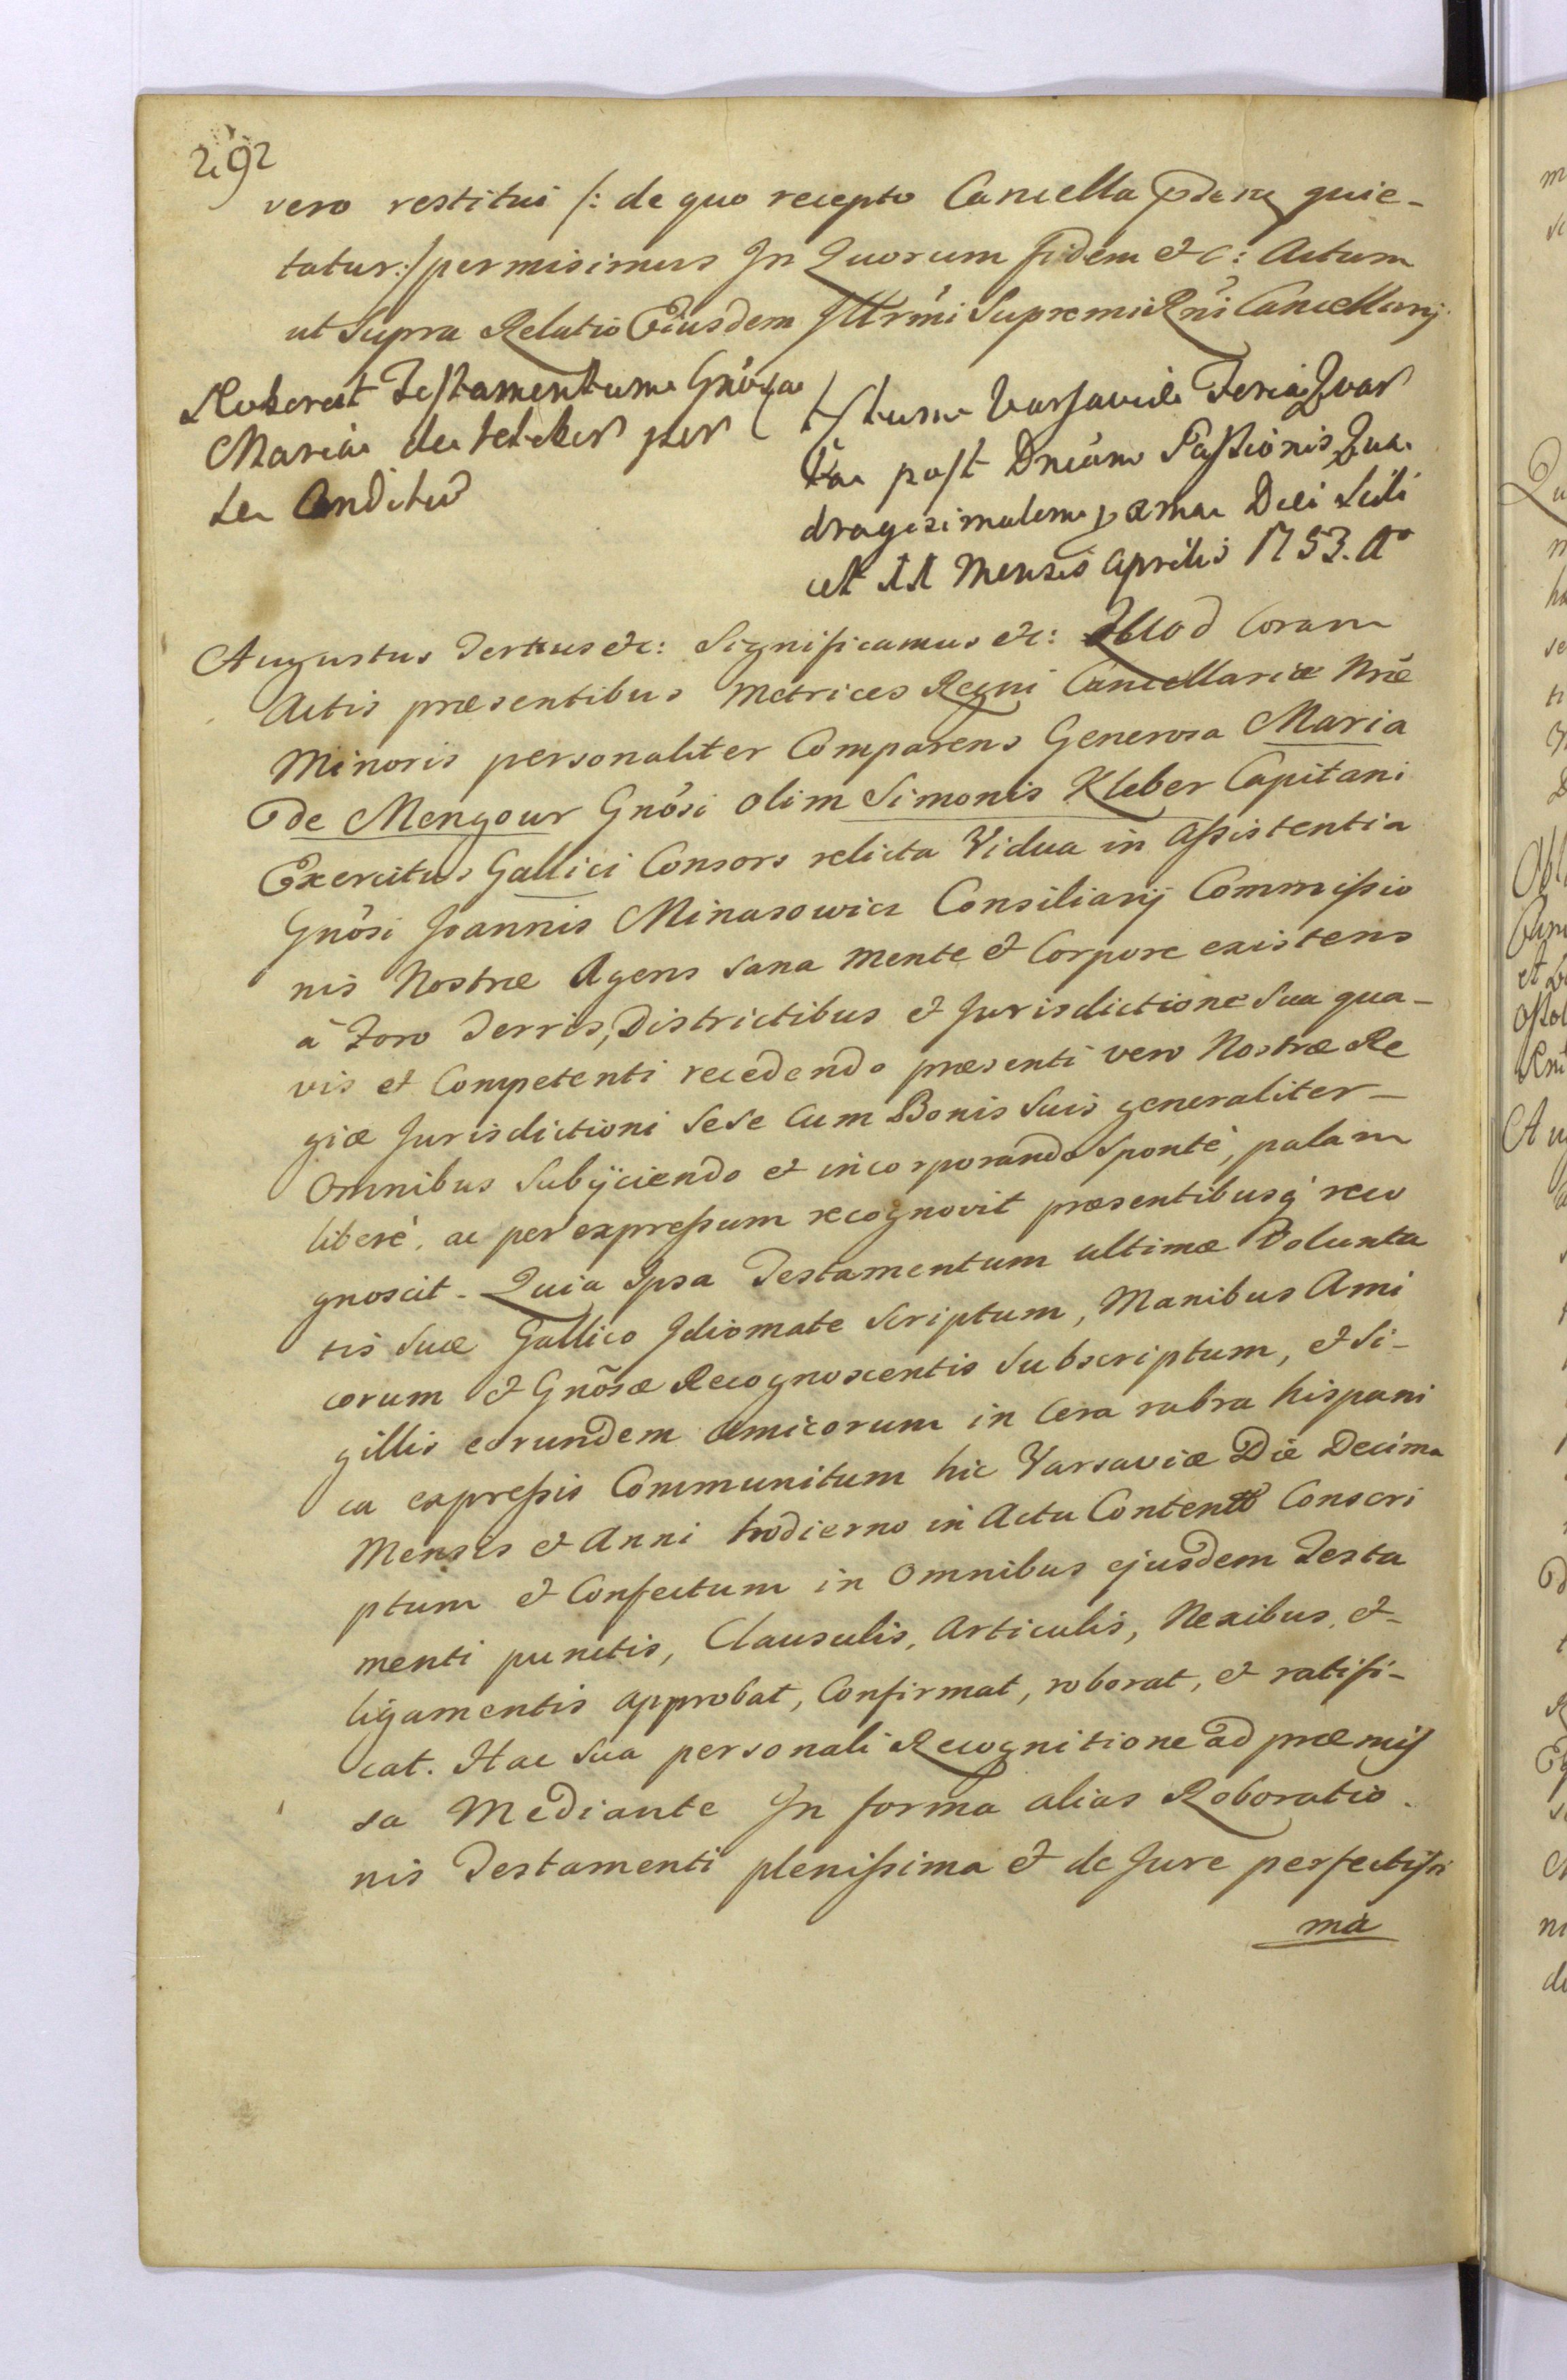 292
vero restitui /: de quo recepto Cancella quie-
tatur :/ permisimus In Quorum fidem etc: Actum
ut Supra Relatio Eiusdem Illrmi Supremi Rni Cancellarij
Roborat Testamentum Gnosa
Maria de Kleber per
se Conditus
Actum Varsaviae Feria Quar
ta post Dnicam Passionis Qua
dragesimalem pxma Diei Scili
cet 11 Mensis Aprilis 1753. Ao
Augustus Tertius etc: Significamus etc: Quod Coram
Actis præsentibus Metrices Regni Cancellariæ Nræ
Minoris personaliter Comparens Generosa Maria
de Mengour Gnosi olim Simonis Kleber Capitani
Exercitus Gallici Consors relicta Vidua in Assistentia
Gnosi Joannis Minasowicz Consiliarij Commissio
nis Nostræ Agens sana mente et Corpore existens
à Foro Terris, Districtibus et Jurisdictione Sua qua-
vis et Competenti recedendo præsenti vero Nostræ Re
giæ Jurisdictioni Sese Cum Bonis Suis generaliter
Omnibus Subijciendo et incorporando Sponte, palam
libere, ac per expressum recognovit præsentibusq reco
gnoscit. Quia Ipsa Testamentum ultimæ Volunta
tis Suæ Gallico Idiomate Scriptum, Manibus Ami
corum et Gnosæ Recognoscentis Subscriptum, et Si-
gillis eorundem Amicorum in Cera rubra hispani
ca expressis Communitum hic Varsaviæ Die Decima
Mensis et Anni hodierno in Actu Content Conscri
ptum et Confectum in Omnibus ejusdem Testa
menti punctis, Clausulis, Articulis, Nexibus, et
ligamentis approbat, Confirmat, roborat, et ratifi-
cat. Hac Sua personali Recognitione ad præmis
sa Mediante In forma alias Roboratio
nis Testamenti plenissima et de Jure perfectissi
ma